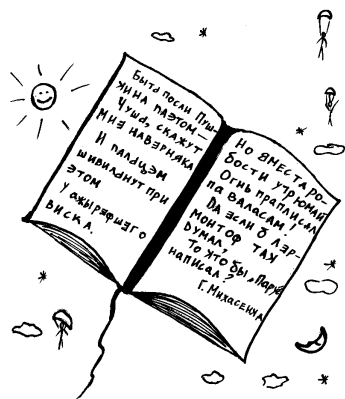 Быть посли Пуш-
кина паэтом —
Чушь, скажут
мне наверняка
И пальцэм
шивильнут при
этом
у ажырефшего
виска.
Но вместа ро-
бости утрюмай
Огнь праплисал
па валасам!
Да если б Лэр-
монтоф так
думал,
То хто бы „Парус"
написал?
Г. Михасенка